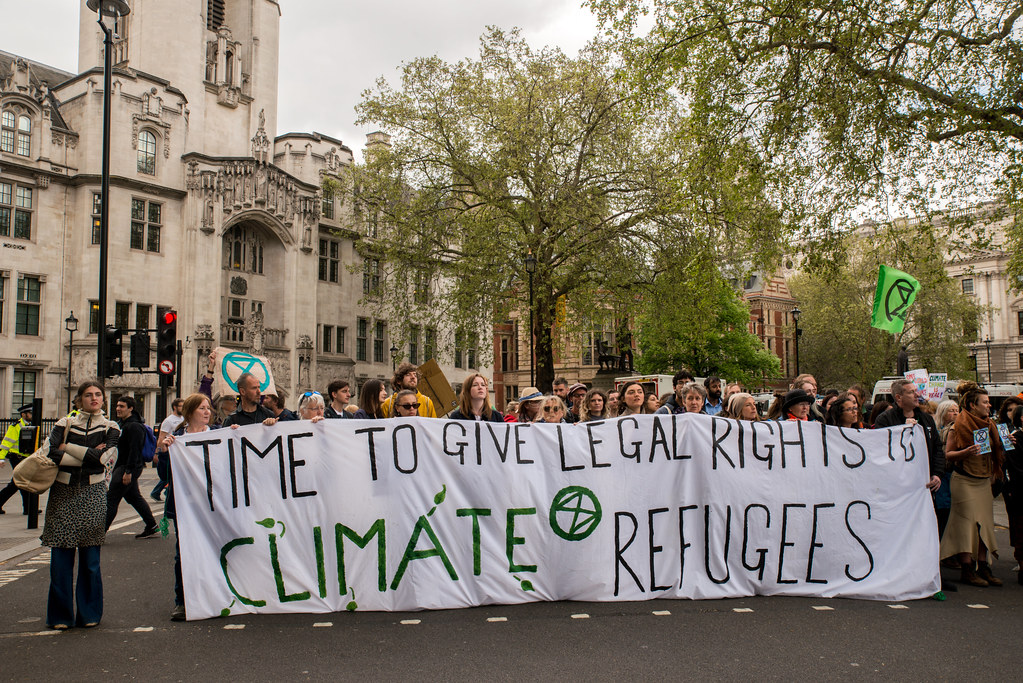 TIME TO GIVE LEGAL RIGHTS TO
CLIMATE REFUGEES